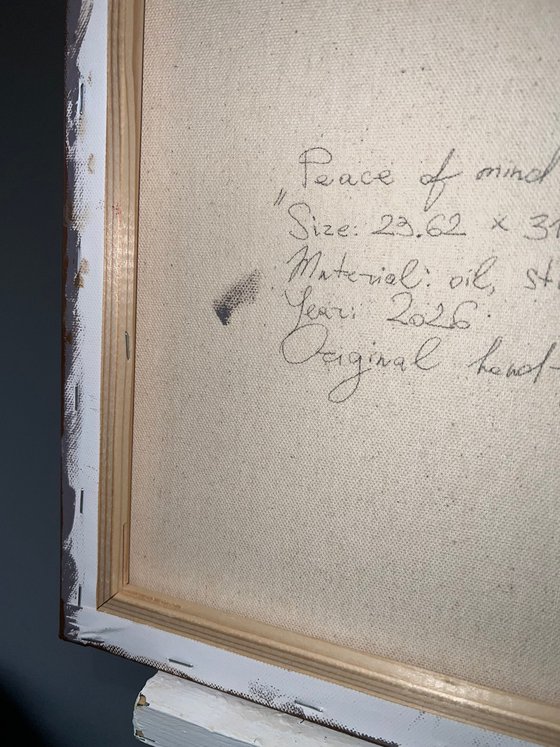 "Peace of mind
Size: 23.62 × 31
Material: oil, st
Year: 2026
Original hand-